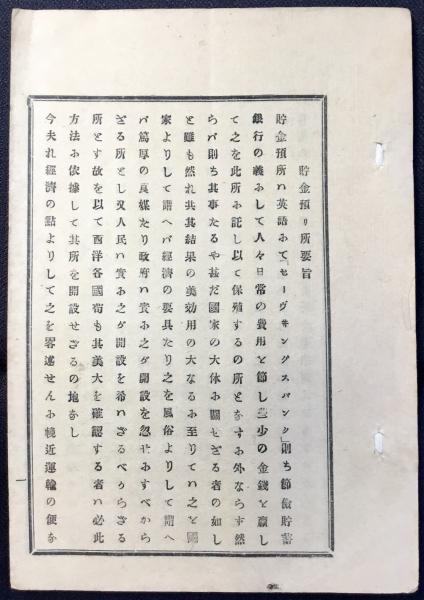 貯金預リ所要旨
貯金預所ハ英語ニて「セーヴヰングスバンク」則ち節儉貯蓄
銀行の義にして人々日常の費用を節し些少の金錢を贏し
て之を此所に託し以て保殖するの所とをすに外ならす然
らバ則ち其事たるや甚だ國家の大体に關せざる者の如し
と雖も然れ共其結果の美効用の大なるに至りてハ之を國
家よりして謂へバ經濟の要具たり之を風俗よりして謂へ
バ篤厚の良媒たり政府ハ實に之が開設を忽せにすべから
ざる所とし又人民ハ實に之が開設を希ハざるべからざる
所とす故を以て西洋各國苟も其美大を確認する者ハ必此
方法に依據して其所を開設せざるの地なし
今夫れ經濟の點よりして之を畧述せんに輓近運輸の便な